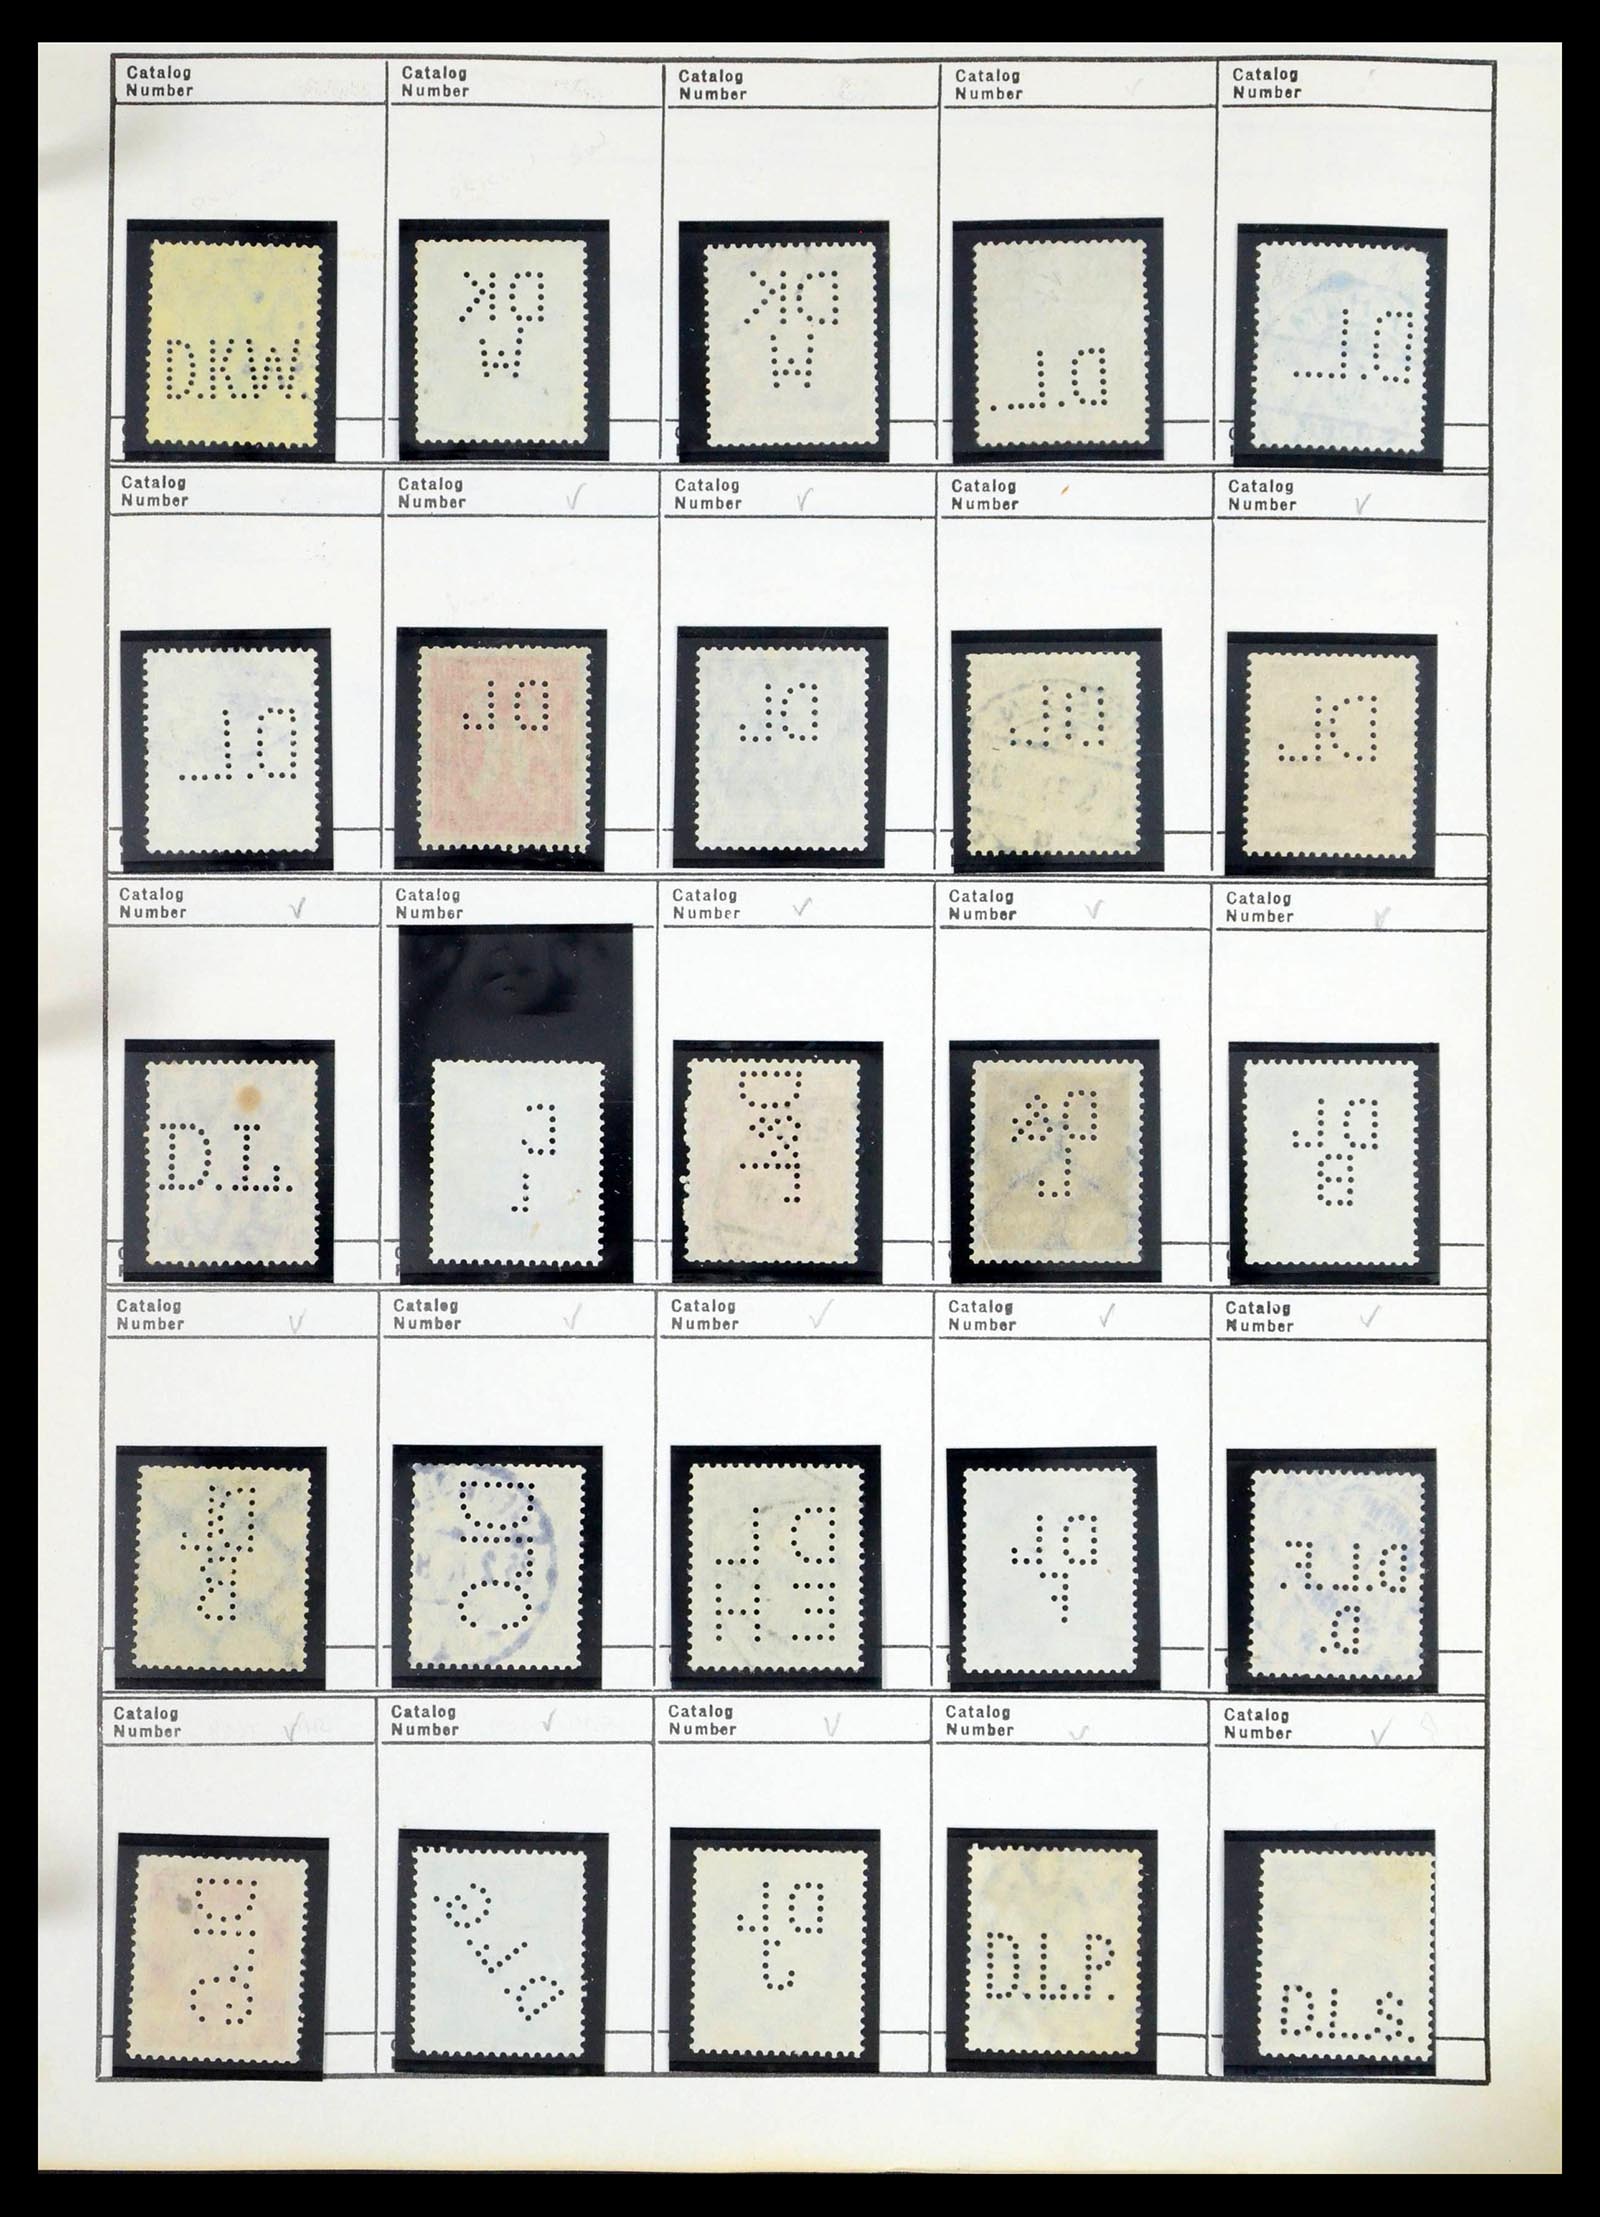 Catalog Number
Catalog Number
Catalog Number
Catalog Number
Catalog Number
D.K.W.
DK
W
DK
W
D.L.
D.L.
Catalog Number
Catalog Number
Catalog Number
Catalog Number
Catalog Number
D.L.
DL
DL
DL
DL
Catalog Number
Catalog Number
Catalog Number
Catalog Number
Catalog Number
D.L.
D&
L
DL
B
Catalog Number
Catalog Number
Catalog Number
Catalog Number
Catalog Number
DL
C
DL
EH
DL
F
D.L.F.
D.
Catalog Number
Catalog Number
Catalog Number
Catalog Number
Catalog Number
DL
G
DLe
DL
J
D.L.P.
D.L.S.